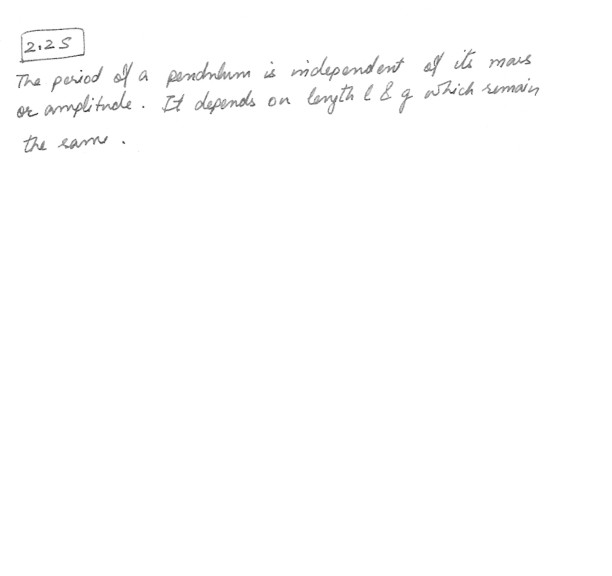 2.25
The period of a pendulum is independent of its mass
or amplitude. It depends on length l & g which remain
the same.